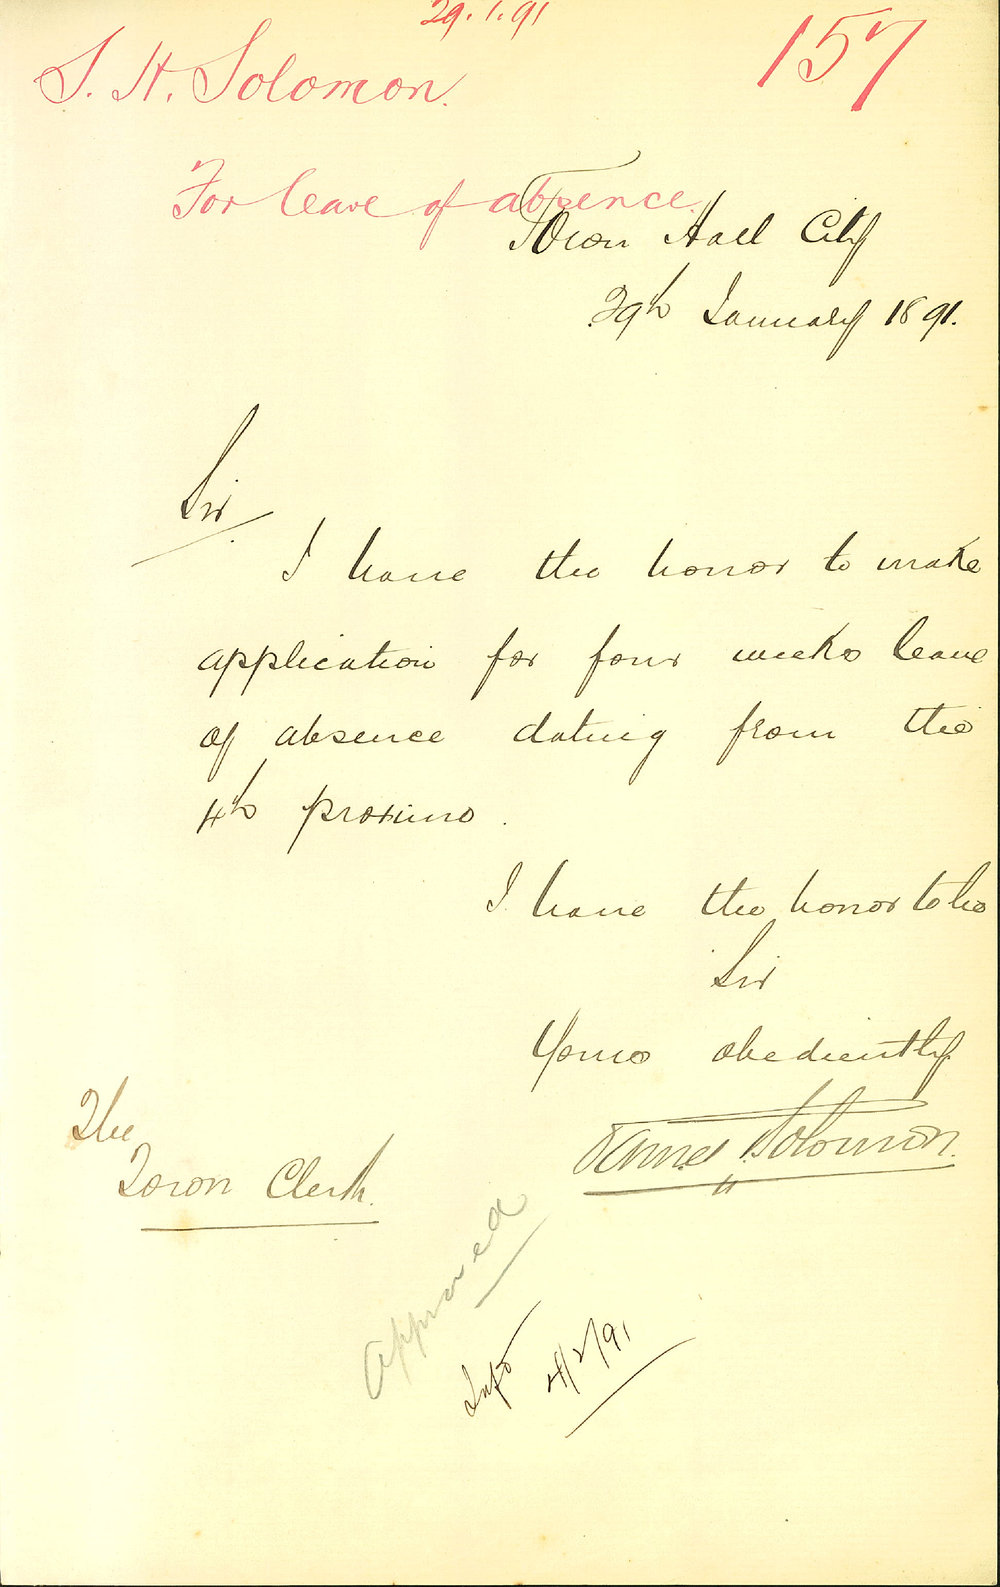 29.1.91
157
S. H. Solomon.
For leave of absence.
Town Hall City
29th January 1891.
Sir
I have the honor to make
application for four weeks leave
of absence dating from the
4th proximo.
I have the honor to be
Sir
Yours obediently
James Solomon.
The
Town Clerk.
Approved
Infd 4/2/91